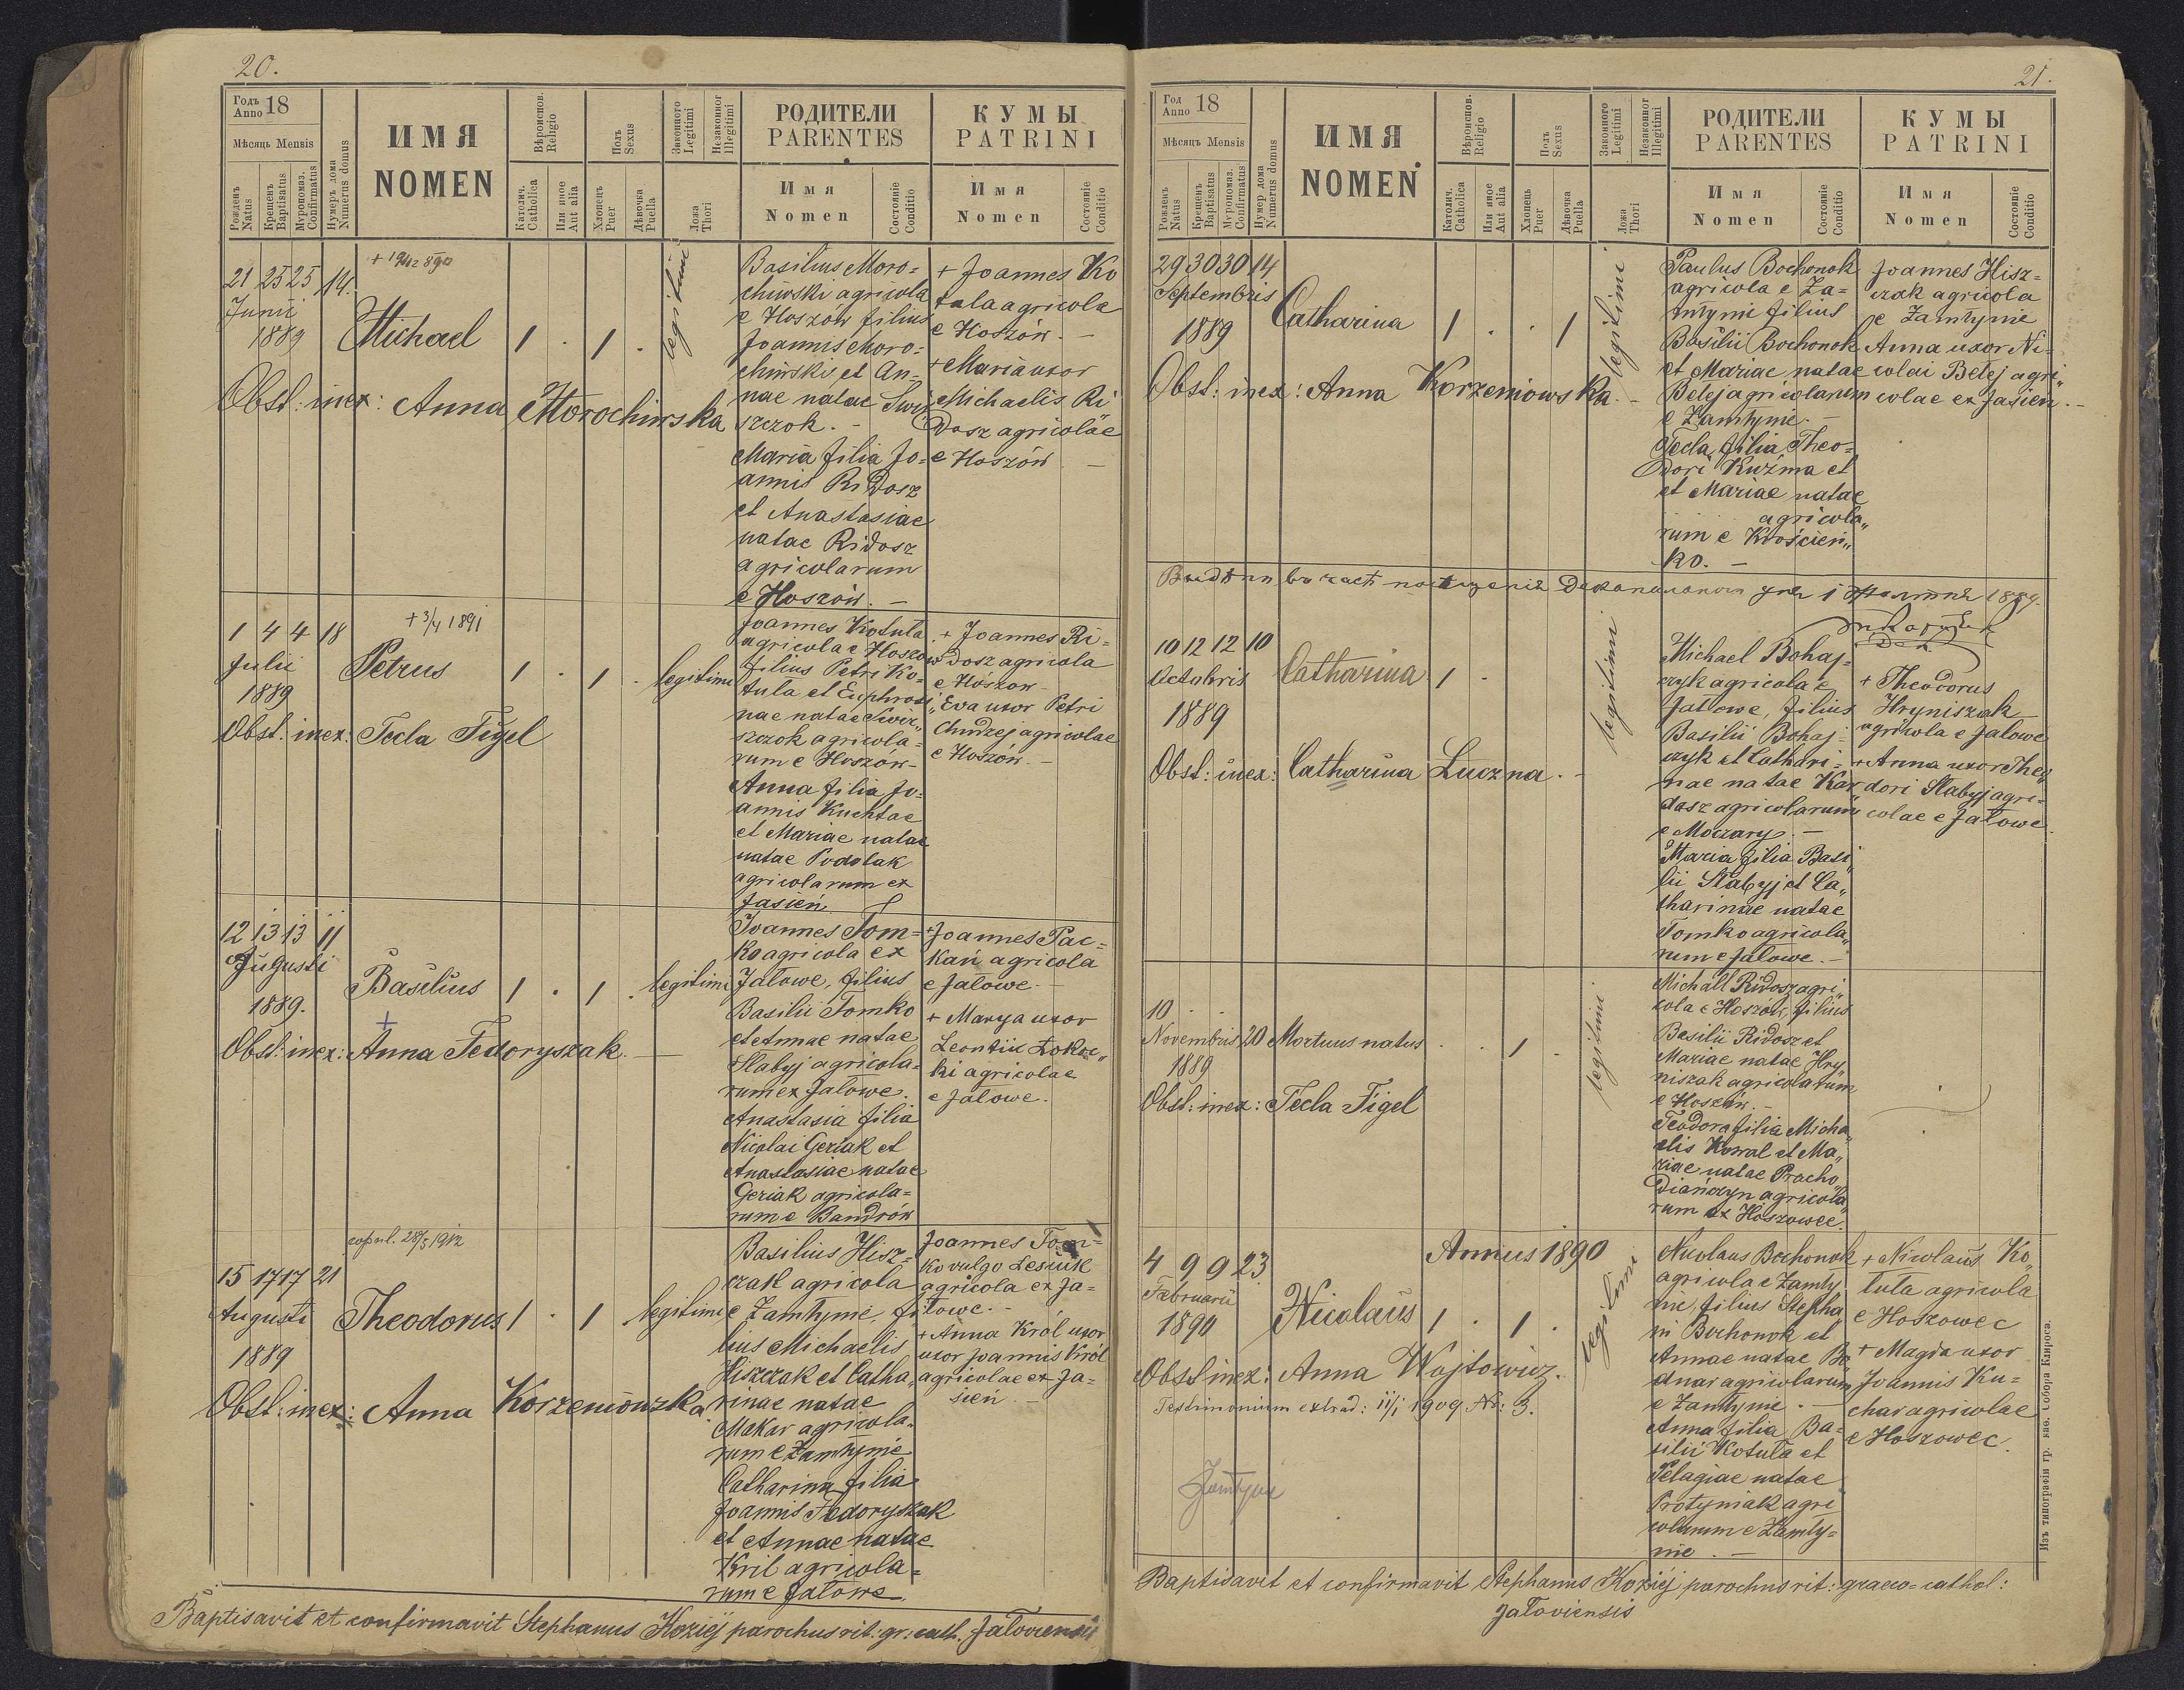 20.
Годъ Anno 18
Мѣсяць Mensis
Рожденъ Natus
Крещенъ Baptisatus
Мѵропомаз. Confirmatus
Нумеръ дома Numerus domus
ИМЯ
NOMEN
Вѣроиспов. Religio
Католич. Catholica
Или иное Aut alia
Полъ Sexus
Хлопець Puer
Дѣвочка Puella
Законного Legitimi
Незаконног Illegitimi
Ложа Thori
РОДИТЕЛИ
PARENTES
Имя
Nomen
Состояніе Conditio
КУМЫ
PATRINI
Имя
Nomen
Состояніе Conditio
21 25 25 14.
Junii
1889
Michael 1 . 1 .
legitimi
Obst: inex: Anna Morochirska
Basilius Moro=
chirski agricola
e Hoszów filius
Joannis Moro=
chirski et An=
nae natae Swi
szczok. -
Maria filia Jo=
annis Ridosz
et Anastasiae
natae Ridosz
agricolarum
e Hoszów. -
+ Joannes Ko
tula agricola
e Hoszów. -
+ Maria uxor
Michaelis Ri
dosz agricolae
e Hoszów -
+ 3/4 1891
1 4 4 18
Julii
1889
Petrus 1 . 1 . legitimi
Obst: inex: Tecla Figel
Joannes Kotula
agricola e Hoszów
filius Petri Ko=
tula et Euphrosi„
nae natae Swir„
szczok agricola=
rum e Hoszów -
Anna filia Jo=
annis Kuchtae
et Mariae natae
natae Podolak
agricolarum ex
Jasień
+ Joannes Ri=
dosz agricola
e Hoszow -
Eva uxor Petri
Chudzej agricolae
e Hoszów. -
12 13 13 11
Augusti
1889.
Basilius 1 . 1 . legitimi
Obst: inex: Anna Fedoryszak. -
Joannes Tom=
ko agricola ex
Jałowe, filius
Basilii Tomko
et Annae natae
Słabyj agricola=
rum ex Jałowe.
Anastasia filia
Nicolai Geriak et
Anastasiae natae
Geriak agricola=
rum e Bandrów
+ Joannes Pac=
kan agricola
e Jałowe. -
+ Marya uxor
Leontii Łokoc„
ki agricolae
e Jałowe.
copul. 28/5 1912
15 17 17 21
Augusti
1889
Theodorus 1 . 1 legitimi
Obst: inex: Anna Korzeniowska.
Basilius Hisz=
czak agricola
e Zamłynie, fi
lius Michaelis
Hiszczak et Catha„
rinae natae
Makar agricola=
rum e Zamłynie
Catharina filia
Joannis Fedoryszak
et Annae natae
Kril agricola=
rum e Jałowe.
Joannes Tom=
ko vulgo Lesiuk
agricola ex Ja=
łowe. -
+ Anna Król uxor
uxor Joannis Król
agricolae ex Ja=
sień -
Baptisavit et confirmavit Stephanus Koziej parochus rit: gr: cath. Jałoviensis
21.
Год Anno 18
Мѣсяцъ Mensis
Рожденъ Natus
Крещенъ Baptisatus
Мѵропомаз. Confirmatus
Нумер дома Numerus domus
ИМЯ
NOMEN
Вѣроиспов. Religio
Католич. Catholica
Или иное Aut alia
Полъ Sexus
Хлопець Puer
Дѣвочка Puella
Законного Legitimi
Незаконног Illegitimi
Ложа Thori
РОДИТЕЛИ
PARENTES
Имя
Nomen
Состояніе Conditio
КУМЫ
PATRINI
Имя
Nomen
Состояніе Conditio
29 30 30 14
Septembris
1889
Catharina 1 . . 1
legitimi
Obst: inex: Anna Korzeniowska. -
Paulus Bochonok
agricola e Za=
młynie filius
Basilii Bochonok
et Mariae natae
Betej agricolarum
e Zamłynie. -
Tecla, filia Theo=
dori Kuźma et
et Mariae natae
agricola„
rum e Krościen„
ko. -
Joannes Hisz=
czak agricola
e Zamłynie
Anna uxor Ni=
colai Betej agri„
colae ex Jasień. -
1889.
10 12 12 10
Octobris
1889
Catharina 1 .
legitimi
Obst: inex: Catharina Luczna. -
Michael Bohaj=
czyk agricola e
Jałowe, filius
Basilii Bohaj=
czyk et Cathari=
nae natae Kar„
dasz agricolarum
e Moczary. -
Maria filia Basi„
lii Słabyj et Ca„
tharinae natae
Tomko agricola„
rum e Jałowe. -
+ Theodorus
Hryniszak
agricola e Jałowe
+ Anna uxor Theo
dori Słabyj agri=
colae e Jałowe.
10 . .
Novembris 20
1889
Mortuus natus . . 1 .
legitimi
Obst: inex: Tecla Figel
Michaël Ridosz agri„
cola e Hoszów, filius
Basilii Ridosz et
Mariae natae Hry„
niszak agricolarum
e Hoszów. -
Teodora filia Micha„
elis Kowal et Ma„
riae natae Pracho„
diańczyn agricola„
rum ex Hoszowec.
Annus 1890
4 9 9 23
Februarii
1890
Nicolaus 1 . 1 .
legitimi
Obst: inex: Anna Wojtowicz.
Testimonium extrad: 11/1 1909 Nr: 3.
Zamłynie
Nicolaus Bochonok
agricola e Zamły
nie, filius Stepha
ni Bochonok et
Annae natae Bo„
dnar agricolarum
e Zamłynie. -
Anna filia Ba=
silii Kotula et
Pelagiae natae
Protyniak agri
colarum e Zamły=
nie. -
+ Nicolaus Ko„
tula agricola
e Hoszowec
+ Magda uxor
Joannis Ku=
char agricolae
e Hoszowec.
Baptisavit et confirmavit Stephanus Koziej parochus rit: graeco=cathol:
Jałoviensis
Изъ типографіи гр. као. Собора Клироса.